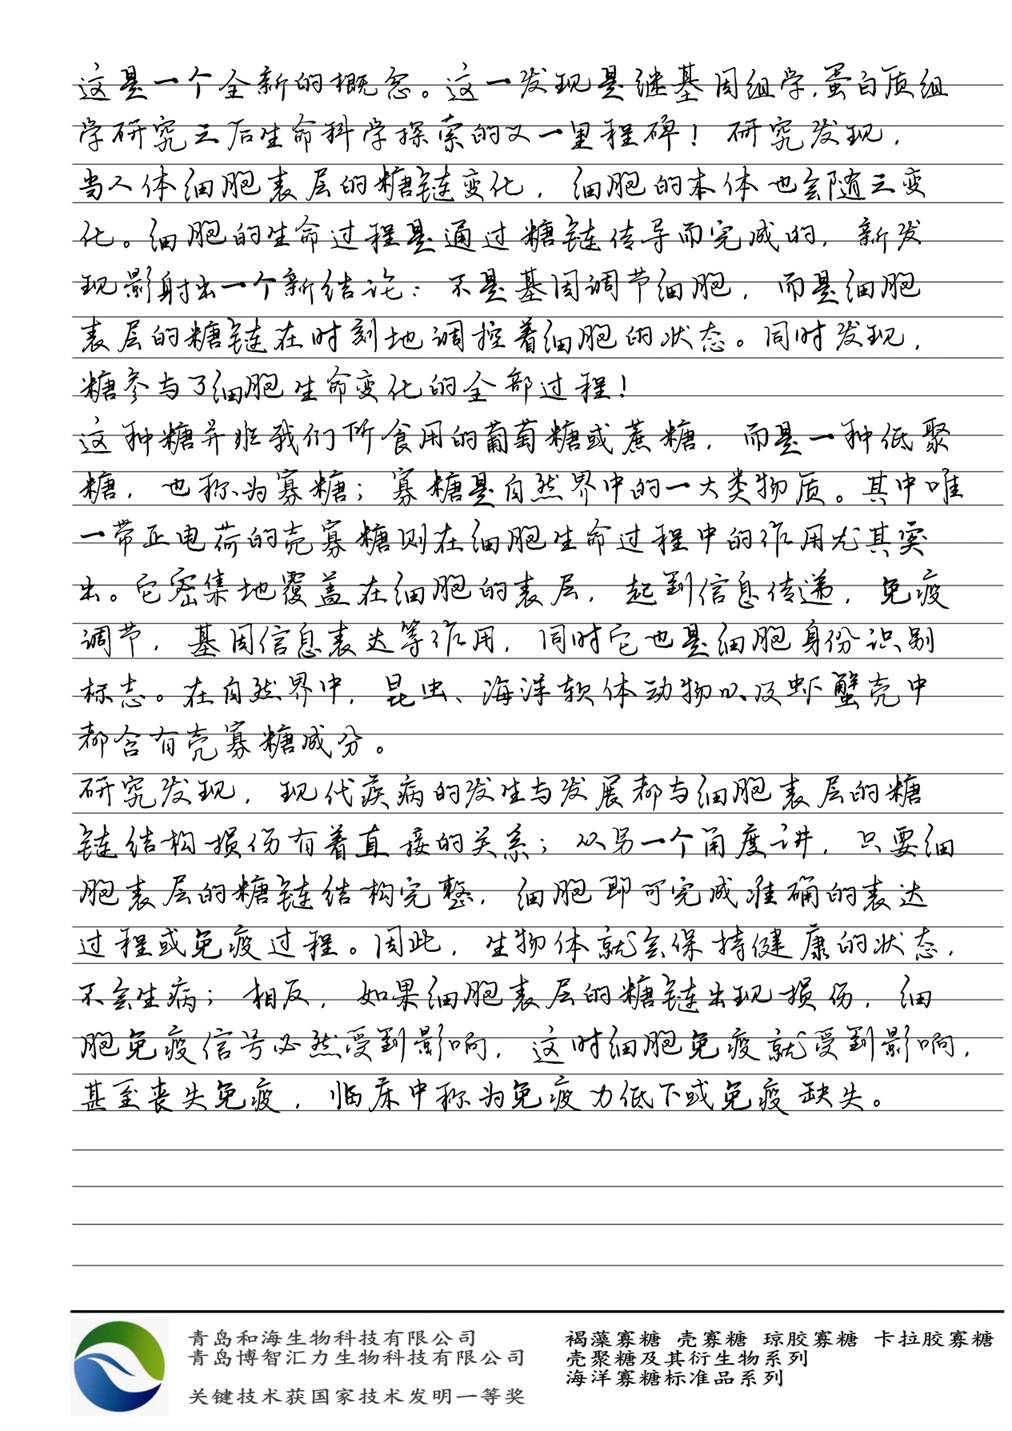 这是一个全新的概念。这一发现是继基因组学,蛋白质组
学研究之后生命科学探索的又一里程碑！研究发现，
当人体细胞表层的糖链变化，细胞的本体也会随之变
化。细胞的生命过程是通过糖链传导而完成的，新发
现影射出一个新结论：不是基因调节细胞，而是细胞
表层的糖链在时刻地调控着细胞的状态。同时发现，
糖参与了细胞生命变化的全部过程！
这种糖并非我们所食用的葡萄糖或蔗糖，而是一种低聚
糖，也称为寡糖；寡糖是自然界中的一大类物质。其中唯
一带正电荷的壳寡糖则在细胞生命过程中的作用尤其突
出。它密集地覆盖在细胞的表层，起到信息传递，免疫
调节，基因信息表达等作用，同时它也是细胞身份识别
标志。在自然界中，昆虫、海洋软体动物以及虾蟹壳中
都含有壳寡糖成分。
研究发现，现代疾病的发生与发展都与细胞表层的糖
链结构损伤有着直接的关系；从另一个角度讲，只要细
胞表层的糖链结构完整，细胞即可完成准确的表达
过程或免疫过程。因此，生物体就会保持健康的状态，
不会生病；相反，如果细胞表层的糖链出现损伤，细
胞免疫信号必然受到影响，这时细胞免疫就受到影响，
甚至丧失免疫，临床中称为免疫力低下或免疫缺失。
青岛和海生物科技有限公司
青岛博智汇力生物科技有限公司
关键技术获国家技术发明一等奖
褐藻寡糖 壳寡糖 琼胶寡糖 卡拉胶寡糖
壳聚糖及其衍生物系列
海洋寡糖标准品系列